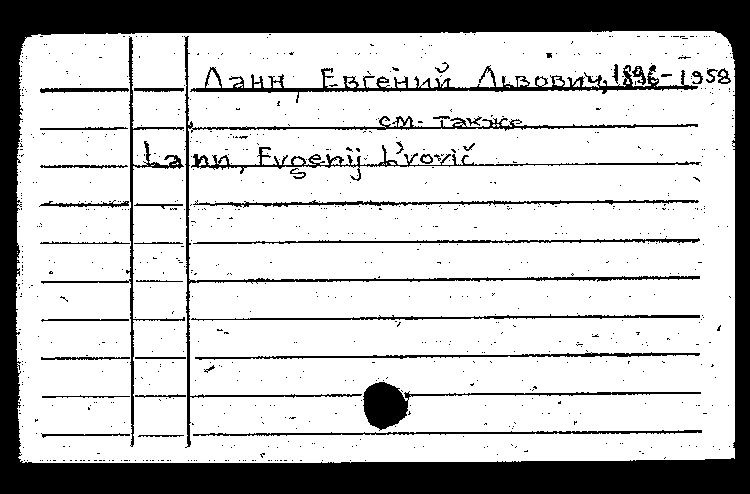 Ланн, Евгений Львович, 1896-1958
см. также
Lann, Evgenij L'vovič